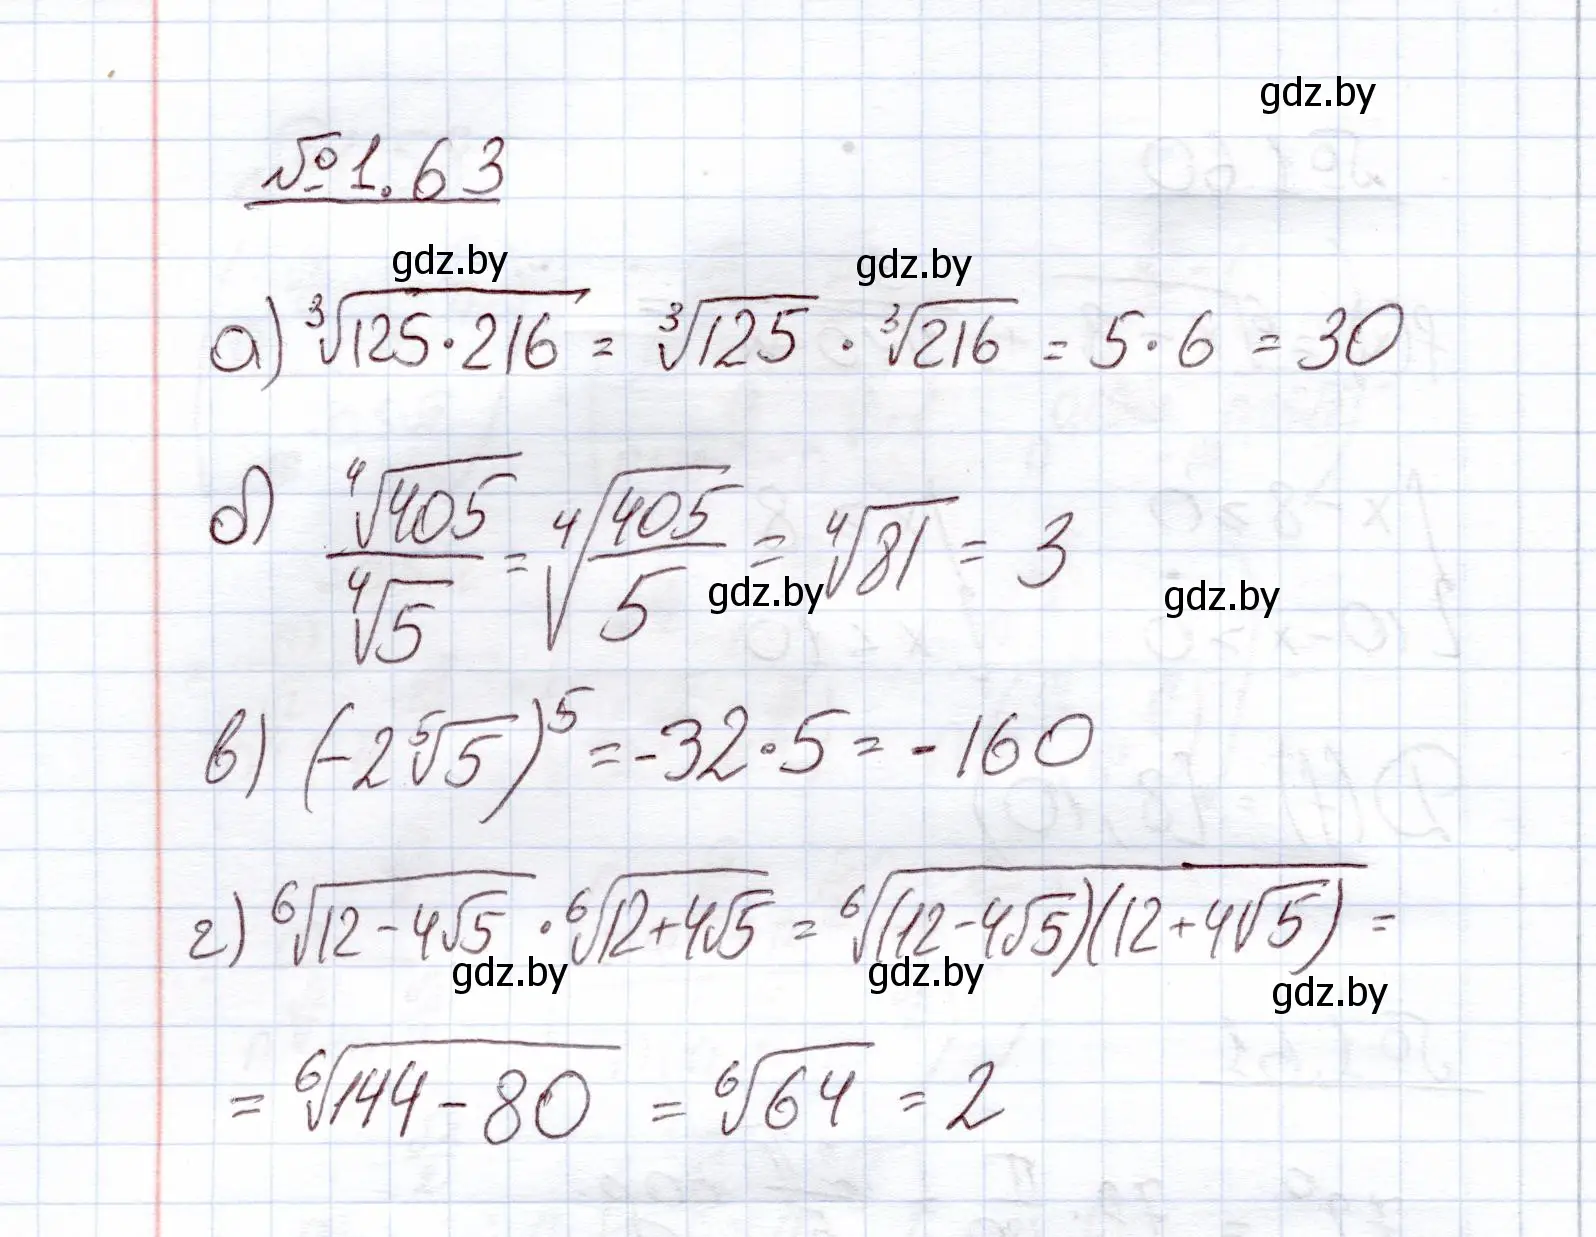 gdz.by
№1.63
gdz.by gdz.by
а) ∛(125·216) = ∛125 · ∛216 = 5·6 = 30
б) ∜405/∜5 = ∜(405/5) = ∜81 = 3
gdz.by gdz.by
в) (-2⁵√5)⁵ = -32·5 = -160
г) ⁶√(12-4√5) · ⁶√(12+4√5) = ⁶√((12-4√5)(12+4√5)) =
gdz.by gdz.by gdz.by
= ⁶√(144-80) = ⁶√64 = 2